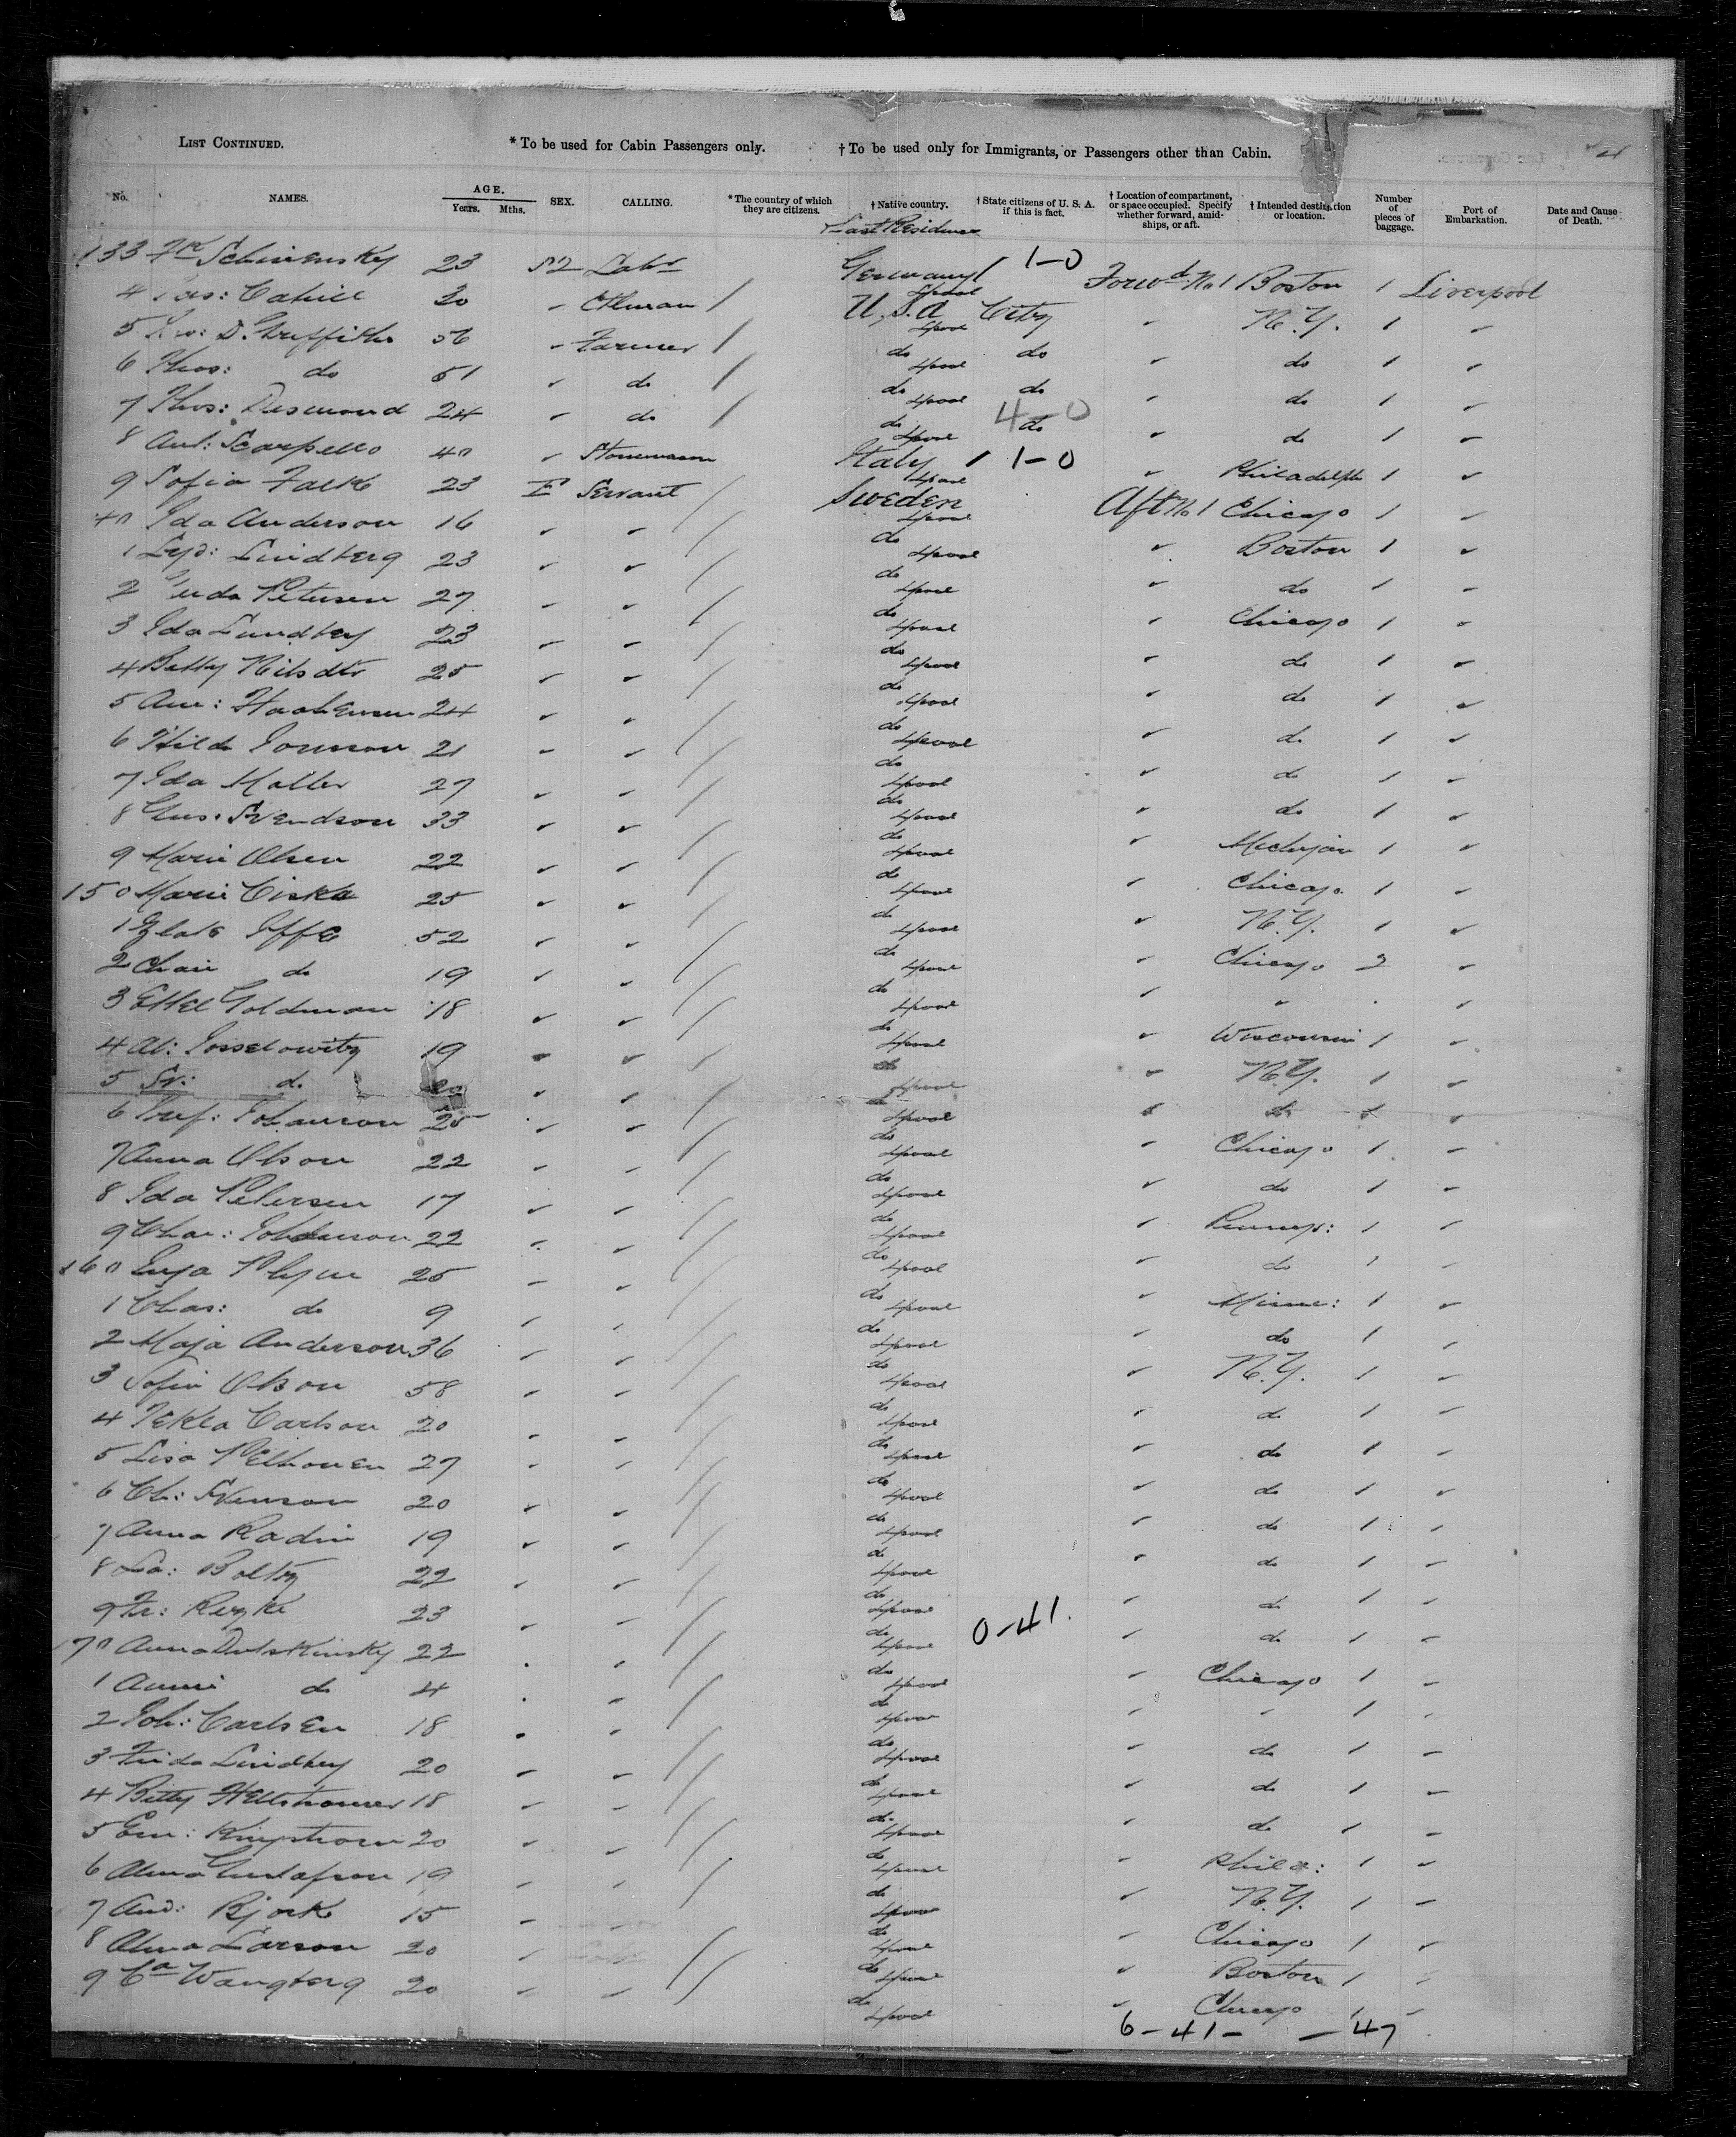 LIST CONTINUED. * To be used for Cabin Passengers only. † To be used only for Immigrants, or Passengers other than Cabin.
No. NAMES. AGE. Years. Mths. SEX. CALLING. * The country of which they are citizens. † Native country. † State citizens of U. S. A. if this is fact. † Location of compartment, or space occupied. Specify whether forward, amidships, or aft. † Intended destination or location. Number of pieces of baggage. Port of Embarkation. Date and Cause of Death.
Last Residence
133 Fk Schinensky 23 Labr Germany Lpool 1-0 Forwd No 1 Boston 1 Liverpool
4 Cahill 30 " U.S.A Lpool City " N.Y. 1 "
5 D. Griffiths 56 " Farmer do Lpool do " do 1 "
6 Thos: do 51 " do do Lpool do " do 1 "
7 Thos: Desmond 24 " do do Lpool do 4-0 " do 1 "
8 Ant: Scarpello 40 " Stonemason Italy Lpool 1-0 " Philadelph 1 "
9 Sofia Falk 23 F Servant Sweden Lpool Aft No 1 Chicago 1 "
40 Ida Anderson 16 " " do Lpool " Boston 1 "
1 Lindberg 23 " " do Lpool " do 1 "
2 Petersen 27 " " do Lpool " Chicago 1 "
3 Ida Lundberg 23 " " do Lpool " do 1 "
4 Betty Nilsdtr 25 " " do Lpool " do 1 "
5 24 " " do Lpool " do 1 "
6 Hilda Jonsson 21 " " do Lpool " do 1 "
7 Ida Moller 27 " " do Lpool " do 1 "
8 Gus: Svendson 33 " " do Lpool " Michigan 1 "
9 Marie Olsen 22 " " do Lpool " Chicago 1 "
150 Marie Ciska 25 " " do Lpool " N.Y. 1 "
1 Zlate Iffe 52 " " do Lpool " Chicago 2 "
2 Chaie do 19 " " do Lpool " " "
3 Ettel Goldman 18 " " do Lpool " Wisconsin 1 "
4 Al: Josselowitz 19 " " do Lpool " N.Y. 1 "
5 do " " Lpool " do "
6 Johanson 25 " " do Lpool " Chicago 1 "
7 Anna Olson 22 " " do Lpool " do 1 "
8 Ida Petersen 17 " " do Lpool " 1 "
9 Char: Johanson 22 " " do Lpool " do 1 "
160 Inga 25 " " do Lpool " Minne: 1 "
1 Chas: do 9 " " do Lpool " do 1 "
2 Maja Anderson 36 " " do Lpool " N.Y. 1 "
3 Sofia Olson 58 " " do Lpool " do 1 "
4 Tekla Carlson 20 " " do Lpool " do 1 "
5 Lisa 27 " " do Lpool " do 1 "
6 Ch: Svenson 20 " " do Lpool " do 1 "
7 Anna Radin 19 " " do Lpool " do 1 "
8 Boltz 22 " " do Lpool " do 1 "
9 Fr: 23 " " do Lpool 0-41. " do 1 "
170 Anna 22 " " do Lpool " Chicago 1 "
1 Anni do 4 " " do Lpool " " 1 "
2 Joh: Carlsen 18 " " do Lpool " do 1 "
3 Frida Lindberg 20 " " do Lpool " do 1 "
4 Betty 18 " " do Lpool " do 1 "
5 Em: 20 " " do Lpool " Phila: 1 "
6 Alma Gustafson 19 " " do Lpool " N.Y. 1 "
7 And: Bjork 15 " " do Lpool " Chicago 1 "
8 Alma Larson 20 " " do Lpool " Boston 1 "
9 Ca Wangberg 20 " " do Lpool " Chicago 1 "
6-41- -47